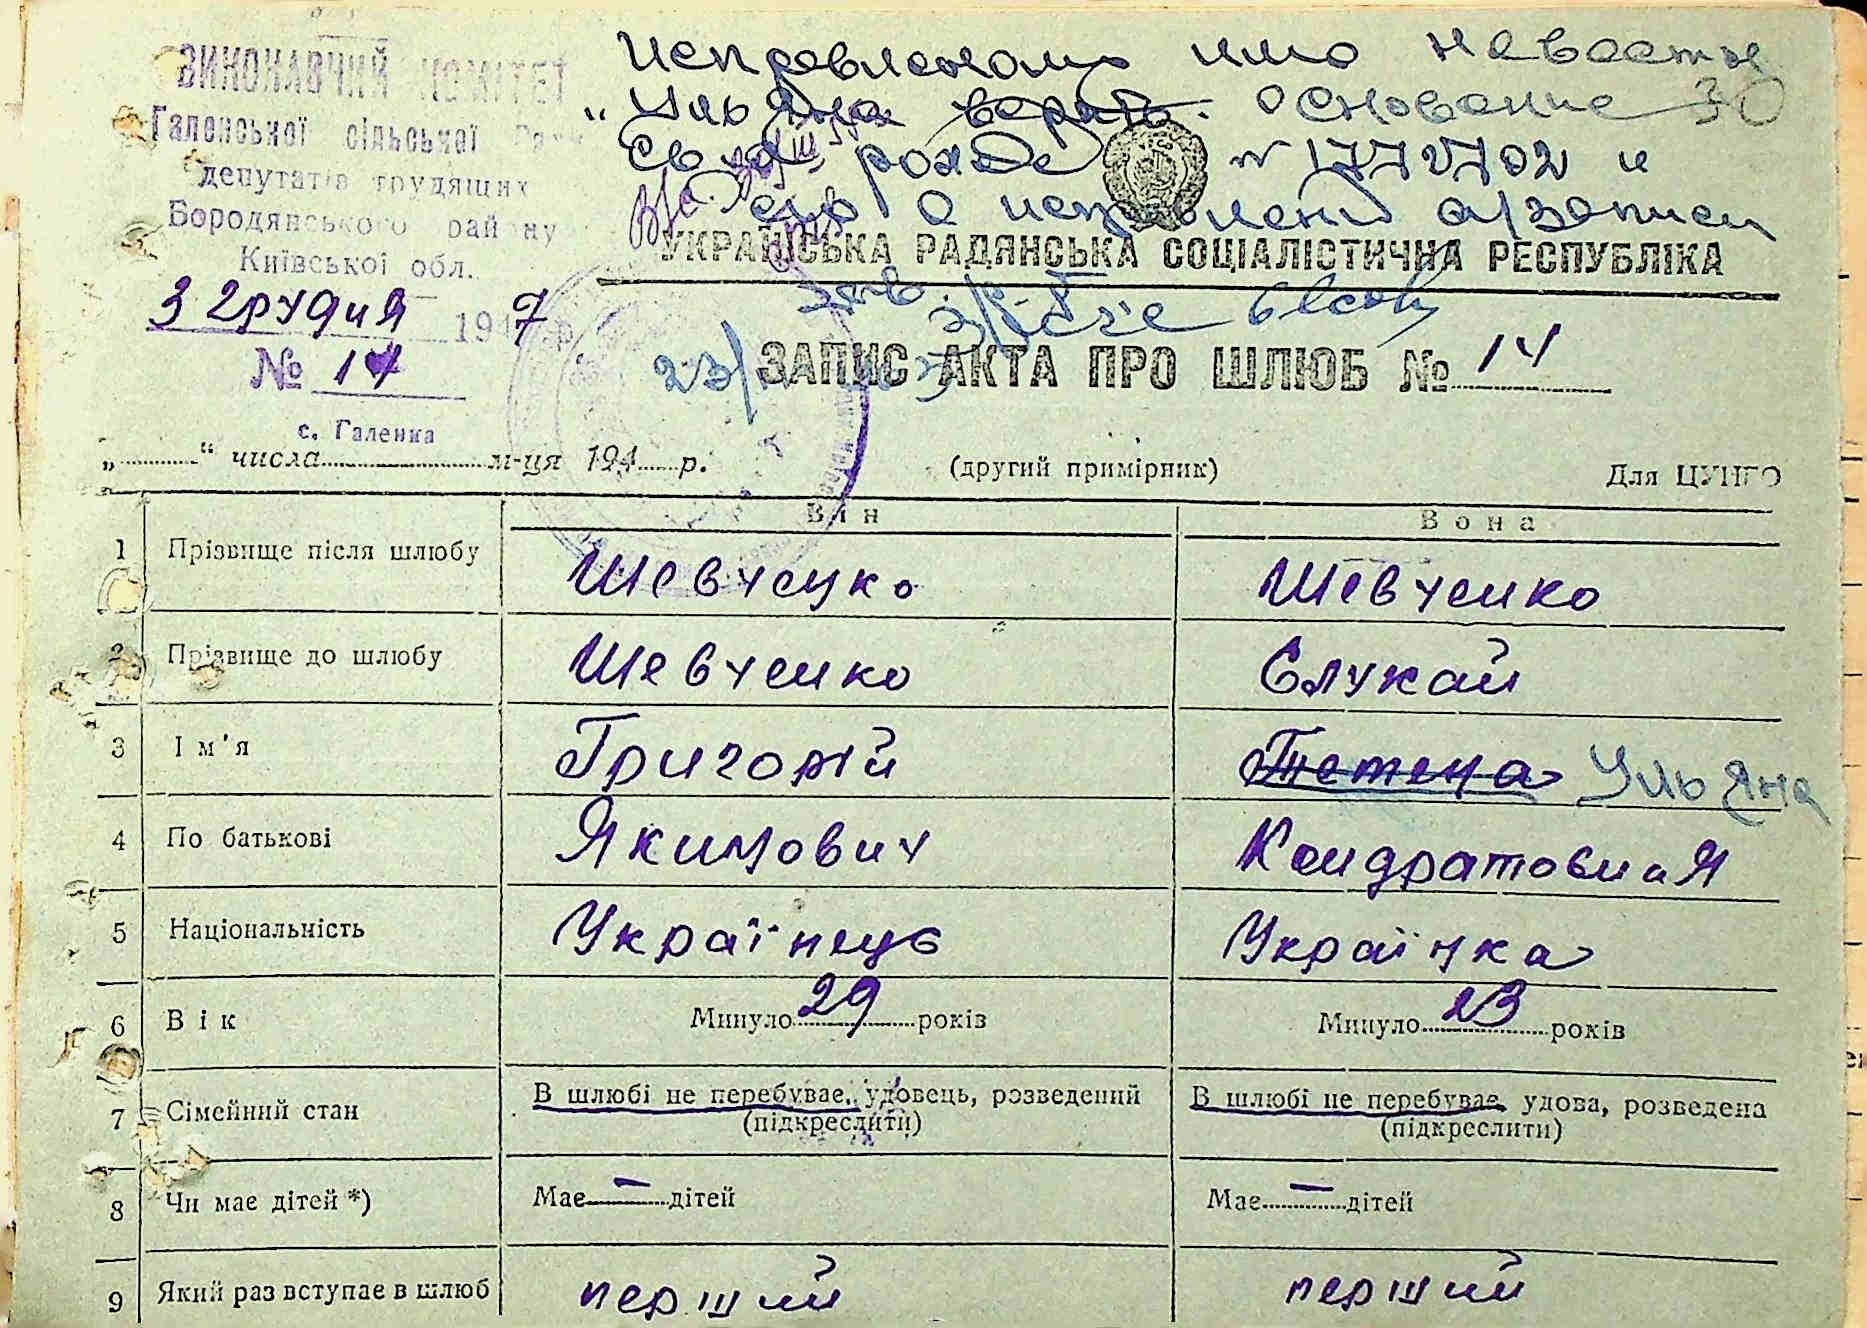 исправленому имя невесты
"Ульяна верить. Основание 30
св о рожде № 1772702 и
о исправлени а/записи
ВИКОНАВЧИЙ КОМІТЕТ
Галенської сільської Ради
депутатів трудящих
Бородянського району
Київської обл.
3 грудня 1947 р.
№ 14
с. Галенка
УКРАЇНСЬКА РАДЯНСЬКА СОЦІАЛІСТИЧНА РЕСПУБЛІКА
ЗАПИС АКТА ПРО ШЛЮБ № 14
„ “ числа м-ця 194 р. (другий примірник) Для ЦУНГО
Він Вона
1 Прізвище після шлюбу Шевченко Шевченко
2 Прізвище до шлюбу Шевченко Слукай
3 Ім'я Григорій Тетена Ульяна
4 По батькові Якимович Кондратовия
5 Національність Українець Українка
6 Вік Минуло 29 років Минуло 23 років
7 Сімейний стан В шлюбі не перебуває, удовець, розведений В шлюбі не перебуває, удова, розведена
(підкреслити) (підкреслити)
8 Чи має дітей *) Має – дітей Має – дітей
9 Який раз вступає в шлюб перший перший